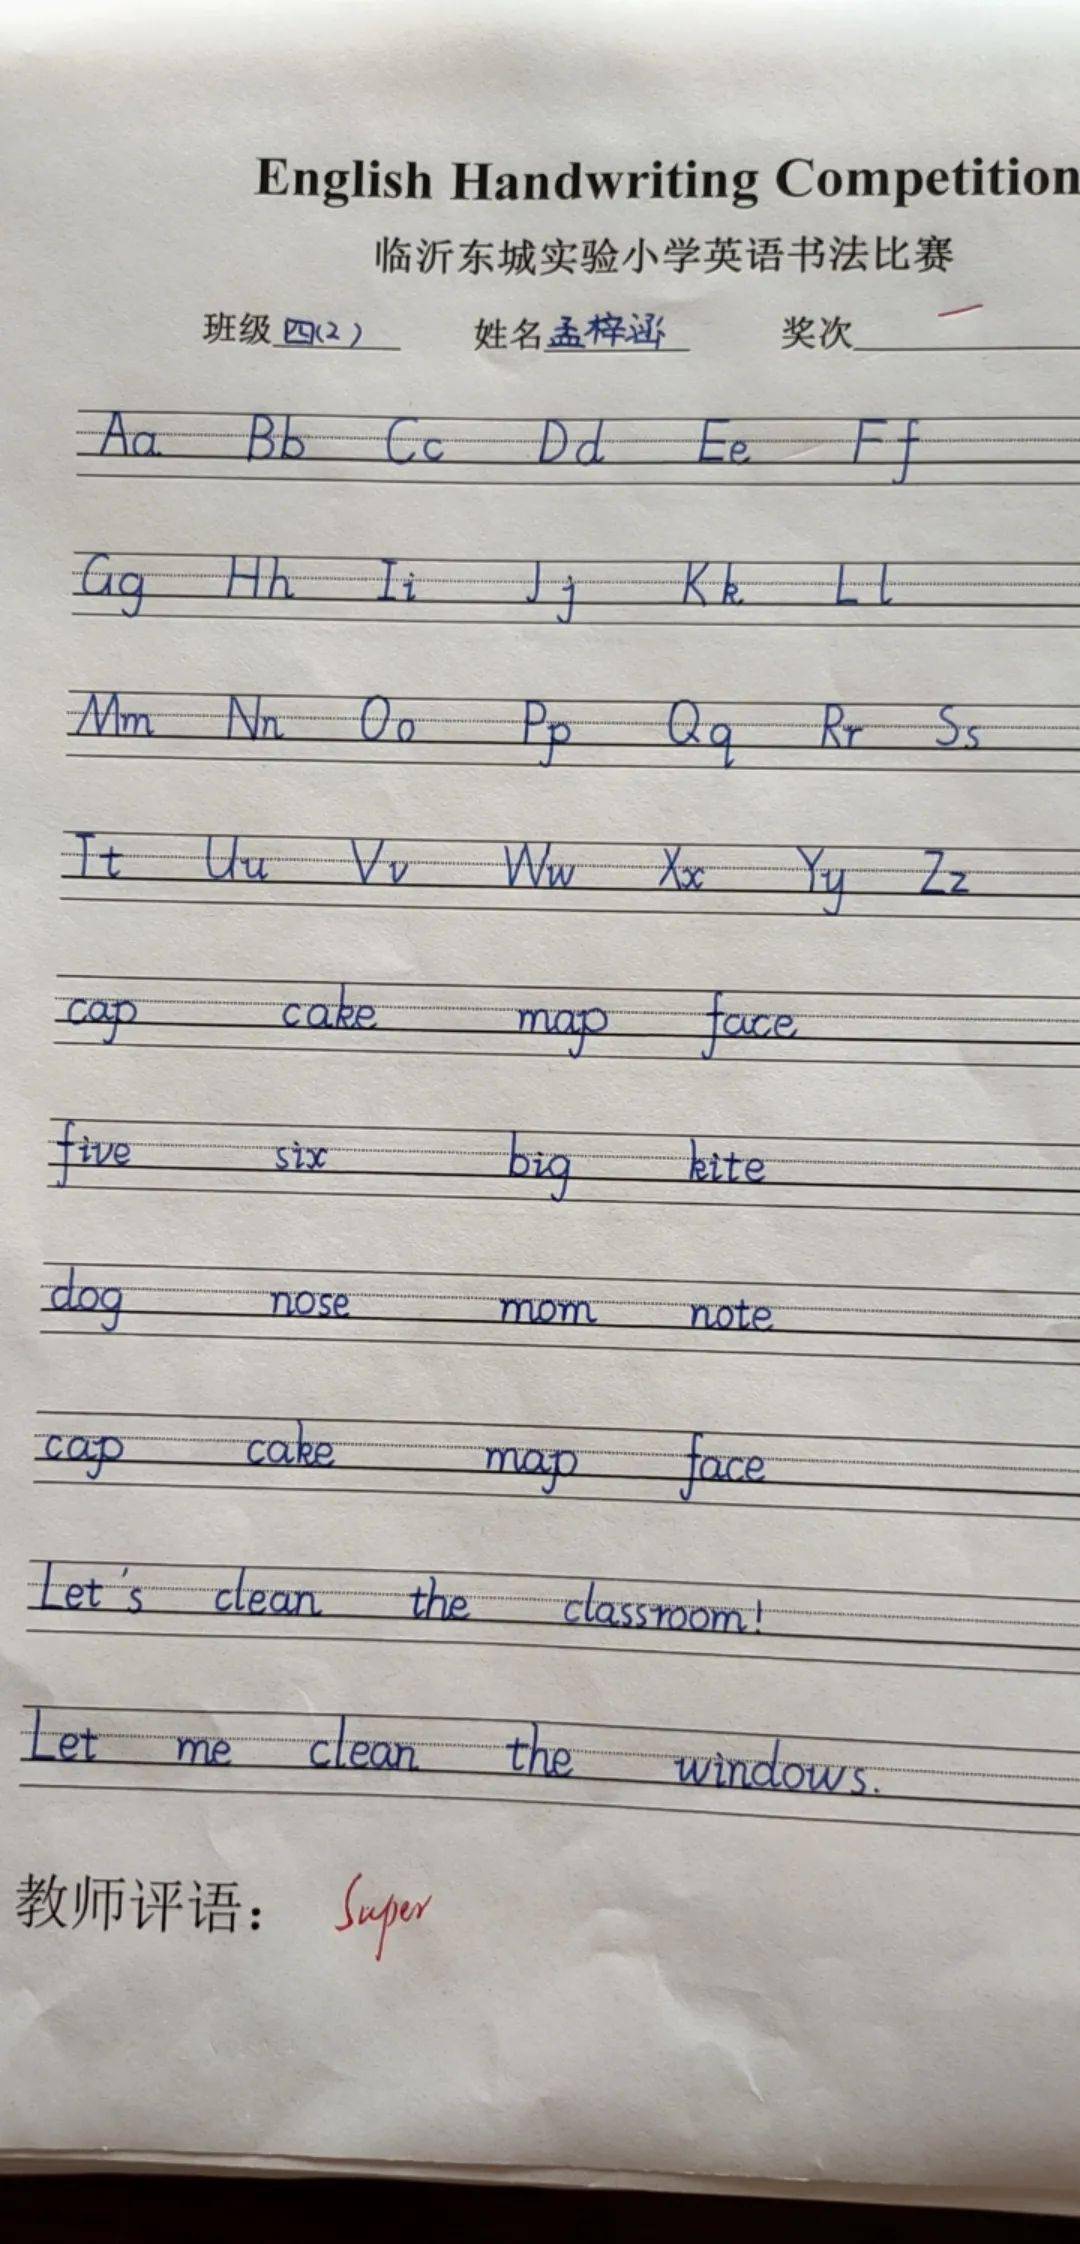 English Handwriting Competition
临沂东城实验小学英语书法比赛
班级 四(2) 姓名 孟梓涵 奖次 一
Aa Bb Cc Dd Ee Ff
Gg Hh Ii Jj Kk Ll
Mm Nn Oo Pp Qq Rr Ss
Tt Uu Vv Ww Xx Yy Zz
cap cake map face
five six big kite
dog nose mom note
cap cake map face
Let's clean the classroom!
Let me clean the windows.
教师评语: Super